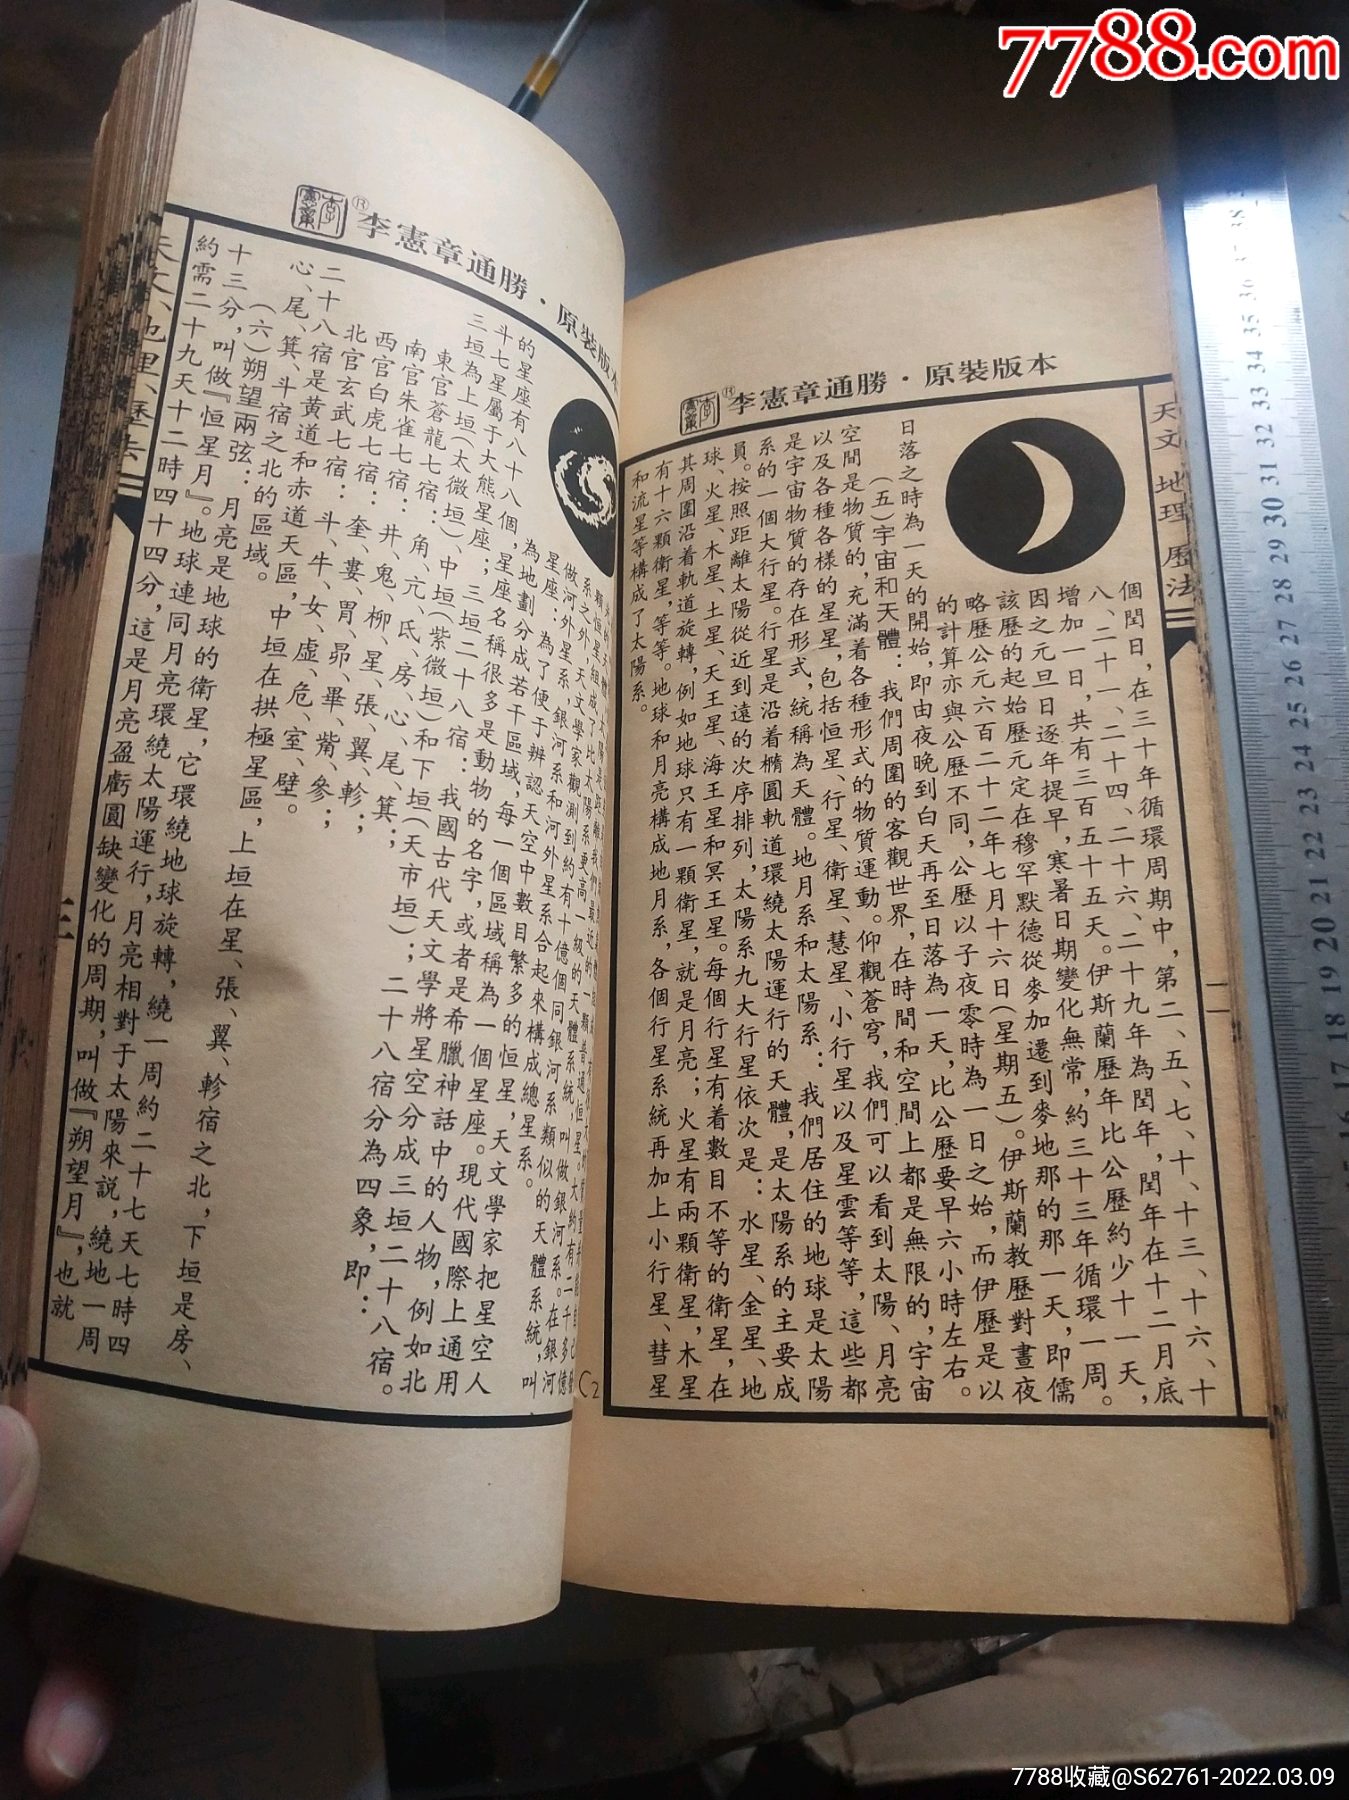 7788.com
李憲章通勝·原裝版本
天文 地理 歷法
二
個閏日，在三十年循環周期中，第二、五、七、十、十三、十六、十
八、二十一、二十四、二十六、二十九年為閏年，閏年在十二月底
增加一日，共有三百五十五天。伊斯蘭歷年比公歷約少十一天，
因之元旦日逐年提早，寒暑日期變化無常，約三十三年循環一周。
該歷的起始歷元定在穆罕默德從麥加遷到麥地那的那一天，即儒
略歷公元六百二十二年七月十六日(星期五)。伊斯蘭教歷對晝夜
的計算亦與公歷不同，公歷以子夜零時為一日之始，而伊歷是以
日落之時為一天的開始，即由夜晚到白天再至日落為一天，比公歷要早六小時左右。
(五)宇宙和天體：我們周圍的客觀世界，在時間和空間上都是無限的，宇宙
空間是物質的，充滿着各種形式的物質運動。仰觀蒼穹，我們可以看到太陽、月亮
以及各種各樣的星星，包括恒星、行星、衛星、慧星、小行星以及星雲等等，這些都
是宇宙物質的存在形式，統稱為天體。地月系和太陽系：我們居住的地球是太陽
系的一個大行星。行星是沿着橢圓軌道環繞太陽運行的天體，是太陽系的主要成
員。按照距離太陽從近到遠的次序排列，太陽系九大行星依次是：水星、金星、地
球、火星、木星、土星、天王星、海王星和冥王星。每個行星有着數目不等的衛星，在
其周圍沿着軌道旋轉，例如地球只有一顆衛星，就是月亮；火星有兩顆衛星，木星
有十六顆衛星，等等。地球和月亮構成地月系，各個行星系統再加上小行星、彗星
和流星等構成了太陽系。
李憲章通勝·原裝版本
系之外，天文學家觀測到約有十億個同銀河系類似的天體系統，叫
做河外星系，銀河系和河外星系合起來構成總星系。
星座：為了便于辨認天空中數目繁多的恒星，天文學家把星空人
為地劃分成若干區域，每一個區域稱為一個星座。現代國際上通用
的星座有八十八個，星座名稱很多是動物的名字，或者是希臘神話中的人物，例如北
斗七星屬于大熊星座；三垣二十八宿：我國古代天文學將星空分成三垣二十八宿。
三垣為上垣(太微垣)、中垣(紫微垣)和下垣(天市垣)；二十八宿分為四象，即：
東官蒼龍七宿：角、亢、氐、房、心、尾、箕；
南官朱雀七宿：井、鬼、柳、星、張、翼、軫；
西官白虎七宿：奎、婁、胃、昴、畢、觜、參；
北官玄武七宿：斗、牛、女、虛、危、室、壁。
二十八宿是黄道和赤道天區，中垣在拱極星區，上垣在星、張、翼、軫宿之北，下垣是房、
心、尾、箕、斗宿之北的區域。
(六)朔望兩弦：月亮是地球的衛星，它環繞地球旋轉，繞一周約二十七天七時四
十三分，叫做『恒星月』。地球連同月亮環繞太陽運行，月亮相對于太陽來説，繞地一周
約需二十九天十二時四十四分，這是月亮盈虧圓缺變化的周期，叫做『朔望月』，也就
天文、地理、歷法
三
7788收藏@S62761-2022.03.09